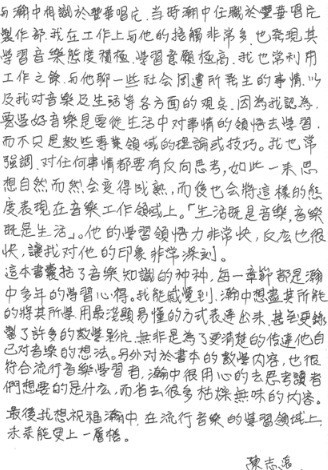 與瀚中相識於豐華唱片,當時瀚中任職於豐華唱片
製作部,我在工作上與他的接觸非常多,也發現其
學習音樂態度積極,學習意願極高,我也常利用
工作之餘,與他聊一些社会周遭所發生的事情,以
及我对音樂及生活等各方面的观点,因為我認為,
要学好音樂是要從生活中对事情的領悟去學習,
而不只是教些專業領域的理論或技巧。我也常
強調,对任何事情都要有反向思考,如此一來,思
想自然而然会变得成熟,而後也会將這樣的態
度表現在音樂工作領域上。「生活既是音樂,音樂
既是生活」。他的學習領悟力非常快,反应也很
快,讓我对他的印象非常深刻。
這本書囊括了音樂知識的种种,每一章節都是瀚
中多年的學習心得。我能感覺到,瀚中想盡其所能
的將其所學用最淺顯易懂的方式表達出來,甚至更錄
製了許多的教學影片,無非是為了更清楚的传達他自
己对音樂的想法。另外对於書本的教學內容,也很
符合流行音樂學習者,瀚中很用心的去思考讀者
們想要的是什么,而省去很多枯燥無味的內容。
最後我想祝福瀚中,在流行音樂的學習領域上,
未來能更上一層樓。
陳志遠